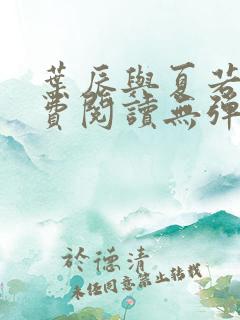 葉辰與夏若
費閱讀無彈
於德清
未經同意禁止轉載